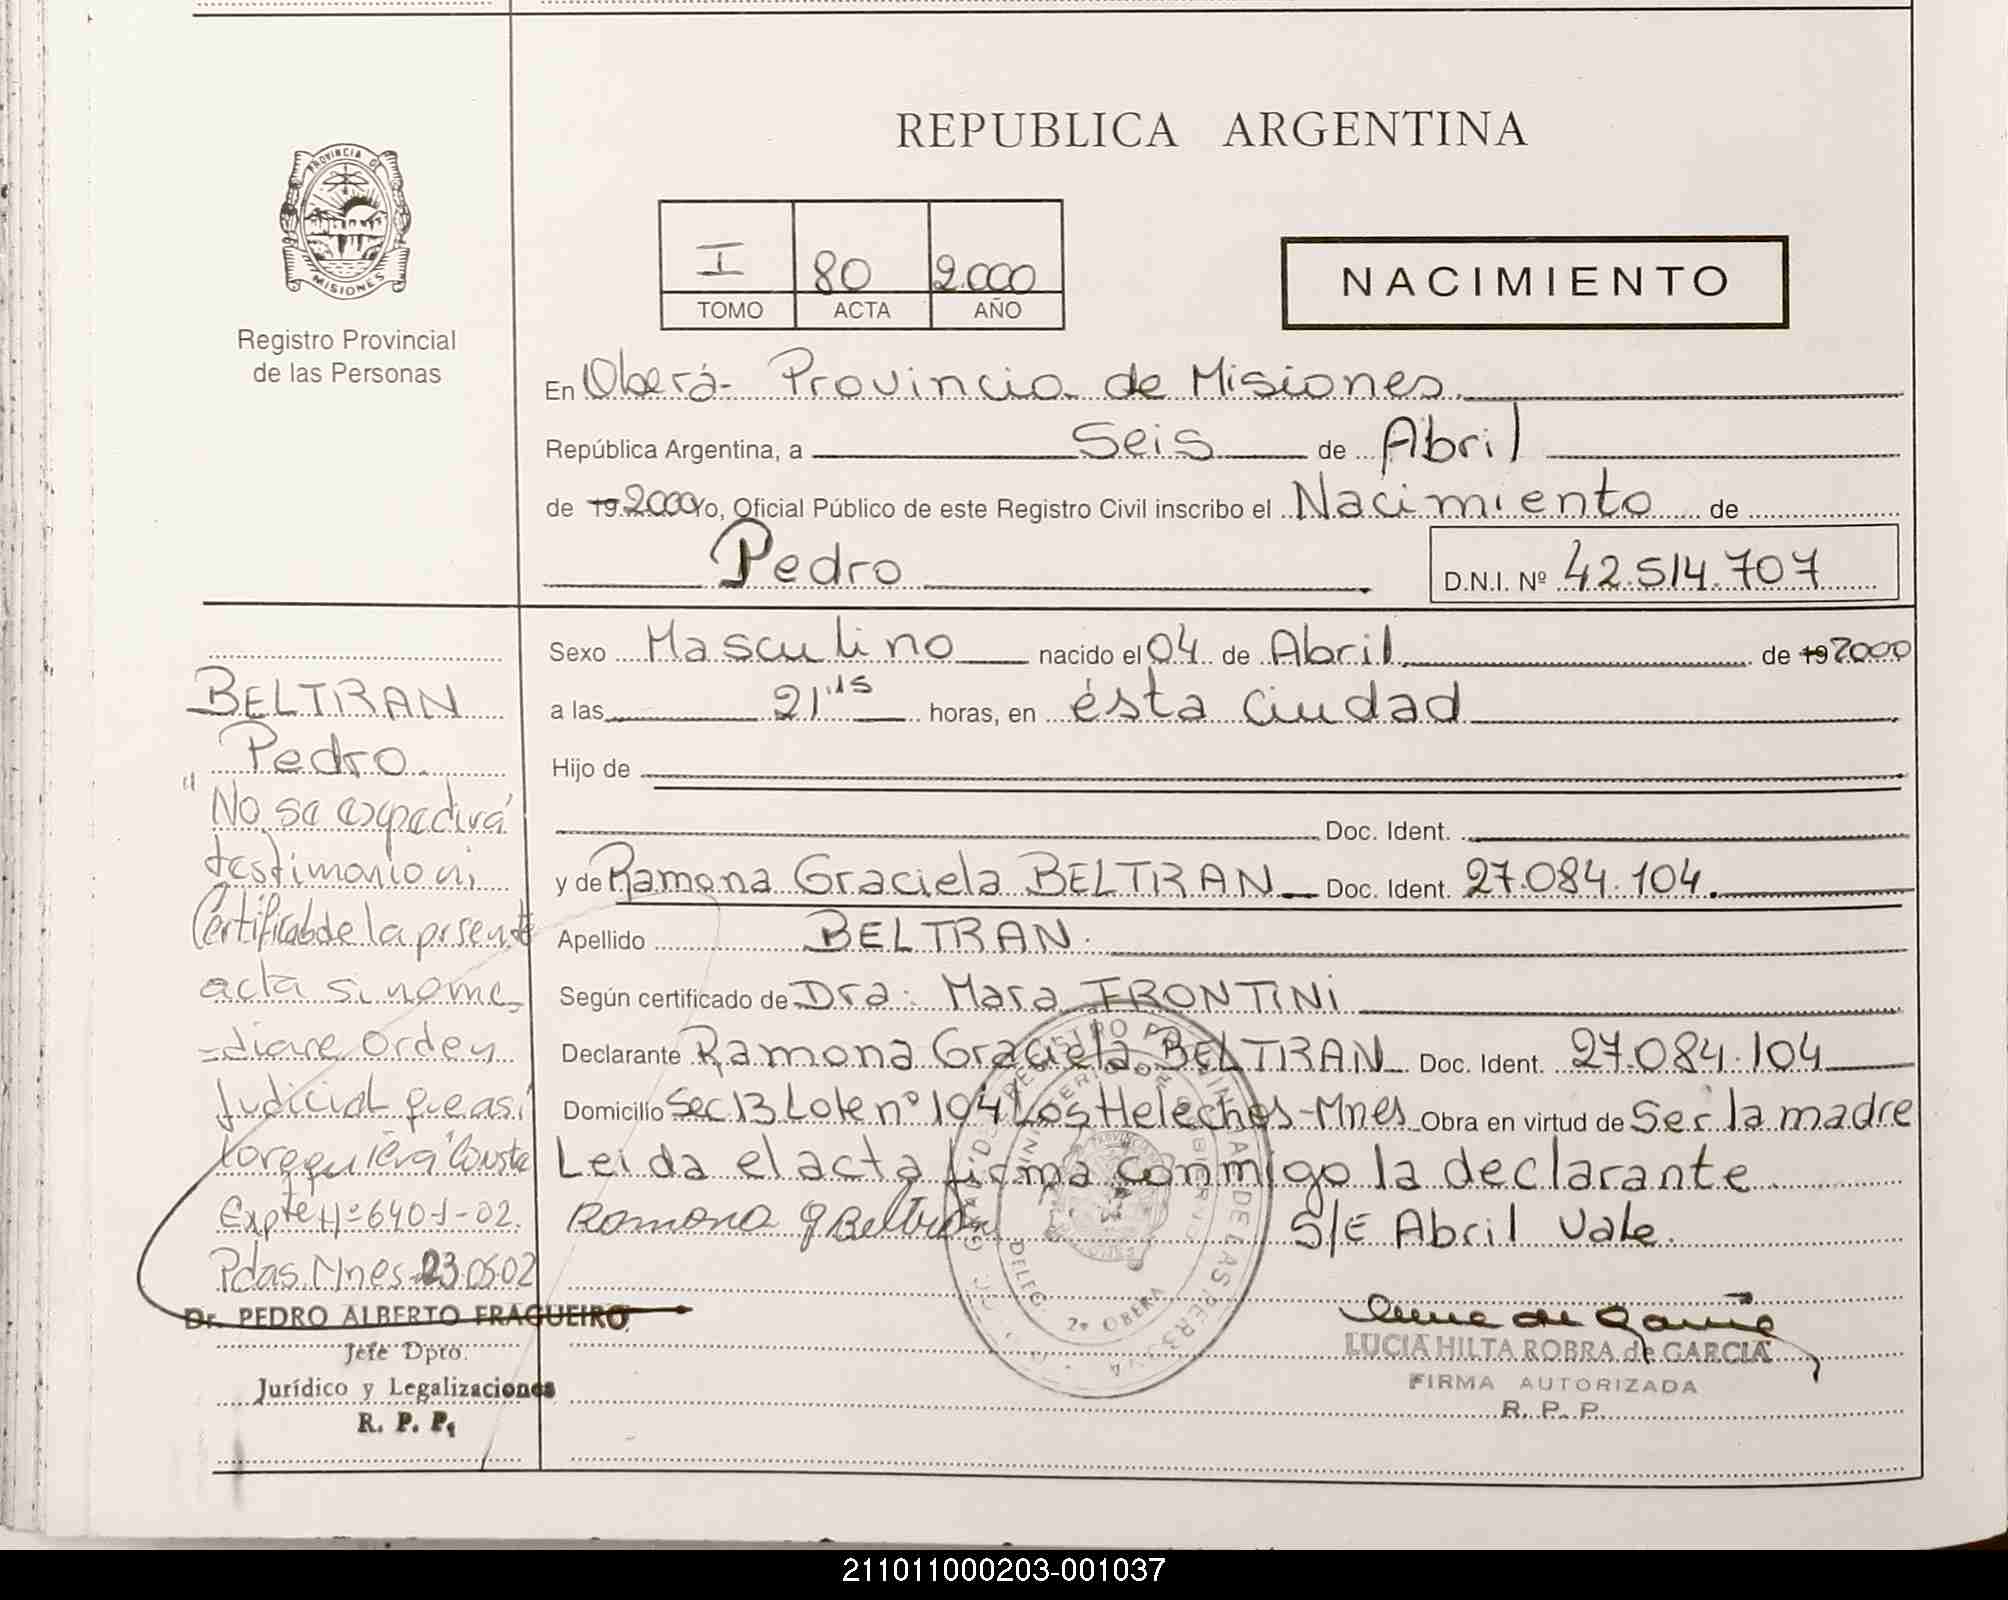 PROVINCIA DE
MISIONES
Registro Provincial
de las Personas
REPUBLICA ARGENTINA
I 80 2.000
TOMO ACTA AÑO
NACIMIENTO
En Oberá- Provincia de Misiones.
República Argentina, a Seis de Abril
de 19 2000 Yo, Oficial Público de este Registro Civil inscribo el Nacimiento de
Pedro
D.N.I. Nº 42.514.707
Sexo Masculino nacido el 04 de Abril de 19 2000
a las 21,15 horas, en ésta ciudad
Hijo de
Doc. Ident.
y de Ramona Graciela BELTRAN Doc. Ident. 27.084.104.
Apellido BELTRAN.
Según certificado de Dra: Mara FRONTINI
Declarante Ramona Graciela BELTRAN Doc. Ident. 27.084.104
Domicilio Sec 13 Lote nº 194 Los Helechos-Mnes Obra en virtud de Ser la madre
Leida el acta firma conmigo la declarante
Ramona G Beltran
S/E Abril Vale.
LUCIA HILTA ROBRA de GARCIA
FIRMA AUTORIZADA
R. P. P.
BELTRAN
Pedro
"No se expedirá
testimonio ni
Certificado de la presente
acta si no me-
=diare orden
Judicial que así
lo requiera" Conste
Expte Nº 640-J-02.
Pdas. Mnes. 23.05.02
Dr. PEDRO ALBERTO FRAGUEIRO
Jefe Dpto.
Jurídico y Legalizaciones
R. P. P.
211011000203-001037